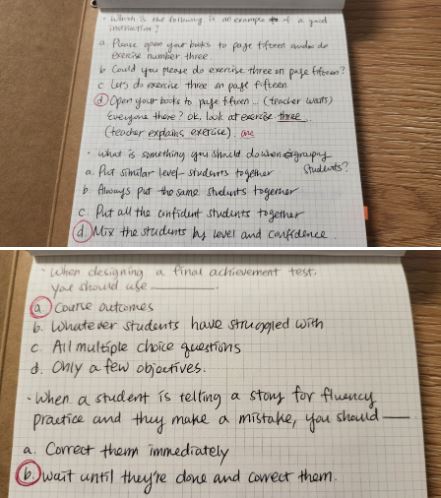 · Which is the following is an example of a good
instruction?
a. Please open your books to page fifteen and do
exercise number three.
b. Could you please do exercise three on page fifteen?
c. Let's do exercise three on page fifteen
d. Open your books to page fifteen ... (teacher waits)
Everyone there? Ok, look at exercise three
(teacher explains exercise). one
· What is something you should do when grouping
students?
a. Put similar level students together
b. Always put the same students together
c. Put all the confident students together
d. Mix the students by level and confidence.
· When designing a final achievement test,
you should use ______.
a. Course outcomes
b. Whatever students have struggled with
c. All multiple choice questions
d. Only a few objectives.
· When a student is telling a story for fluency
practice and they make a mistake, you should ____
a. Correct them immediately
b. wait until they're done and correct them.